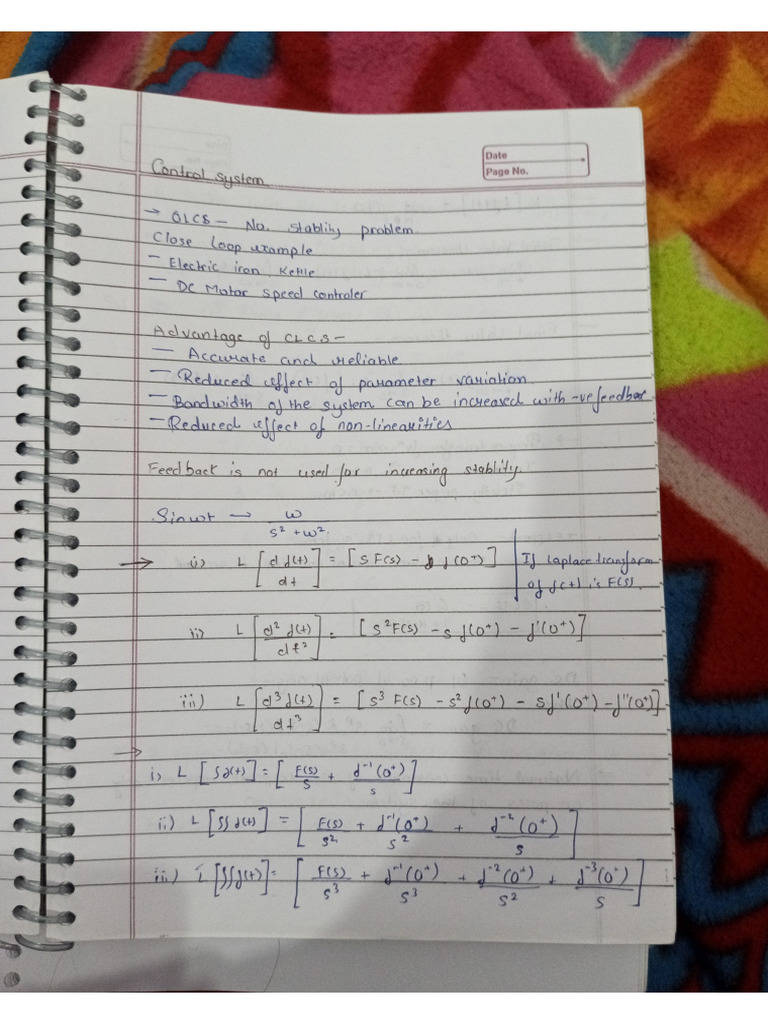 Date
Page No.
Control system
→ OLCS – No. stablity problem.
Close Loop example
– Electric iron, Kettle
– DC Motor speed controler
Advantage of CLCS –
– Accurate and reliable
– Reduced effect of parameter variation.
– Bandwidth of the system can be increased with -ve feedback
– Reduced effect of non-linearities
Feedback is not used for increasing stablity.
Sinwt → w / s² + w².
→ i) L [d f(t) / dt] = [S F(s) – f(0⁺)] | If Laplace transform
of f(t) is F(S).
ii) L [d² f(t) / dt²] = [s² F(s) – s f(0⁺) – f'(0⁺)]
iii) L [d³ f(t) / dt³] = [s³ F(s) – s² f(0⁺) – s f'(0⁺) – f''(0⁺)]
→
i) L [∫f(t)] = [F(s) / s + f⁻¹(0⁺) / s]
ii) L [∫∫ f(t)] = [F(s) / s² + f⁻¹(0⁺) / s² + f⁻²(0⁺) / s]
iii) L [∫∫∫f(t)] = [F(s) / s³ + f⁻¹(0⁺) / s³ + f⁻²(0⁺) / s² + f⁻³(0⁺) / s]